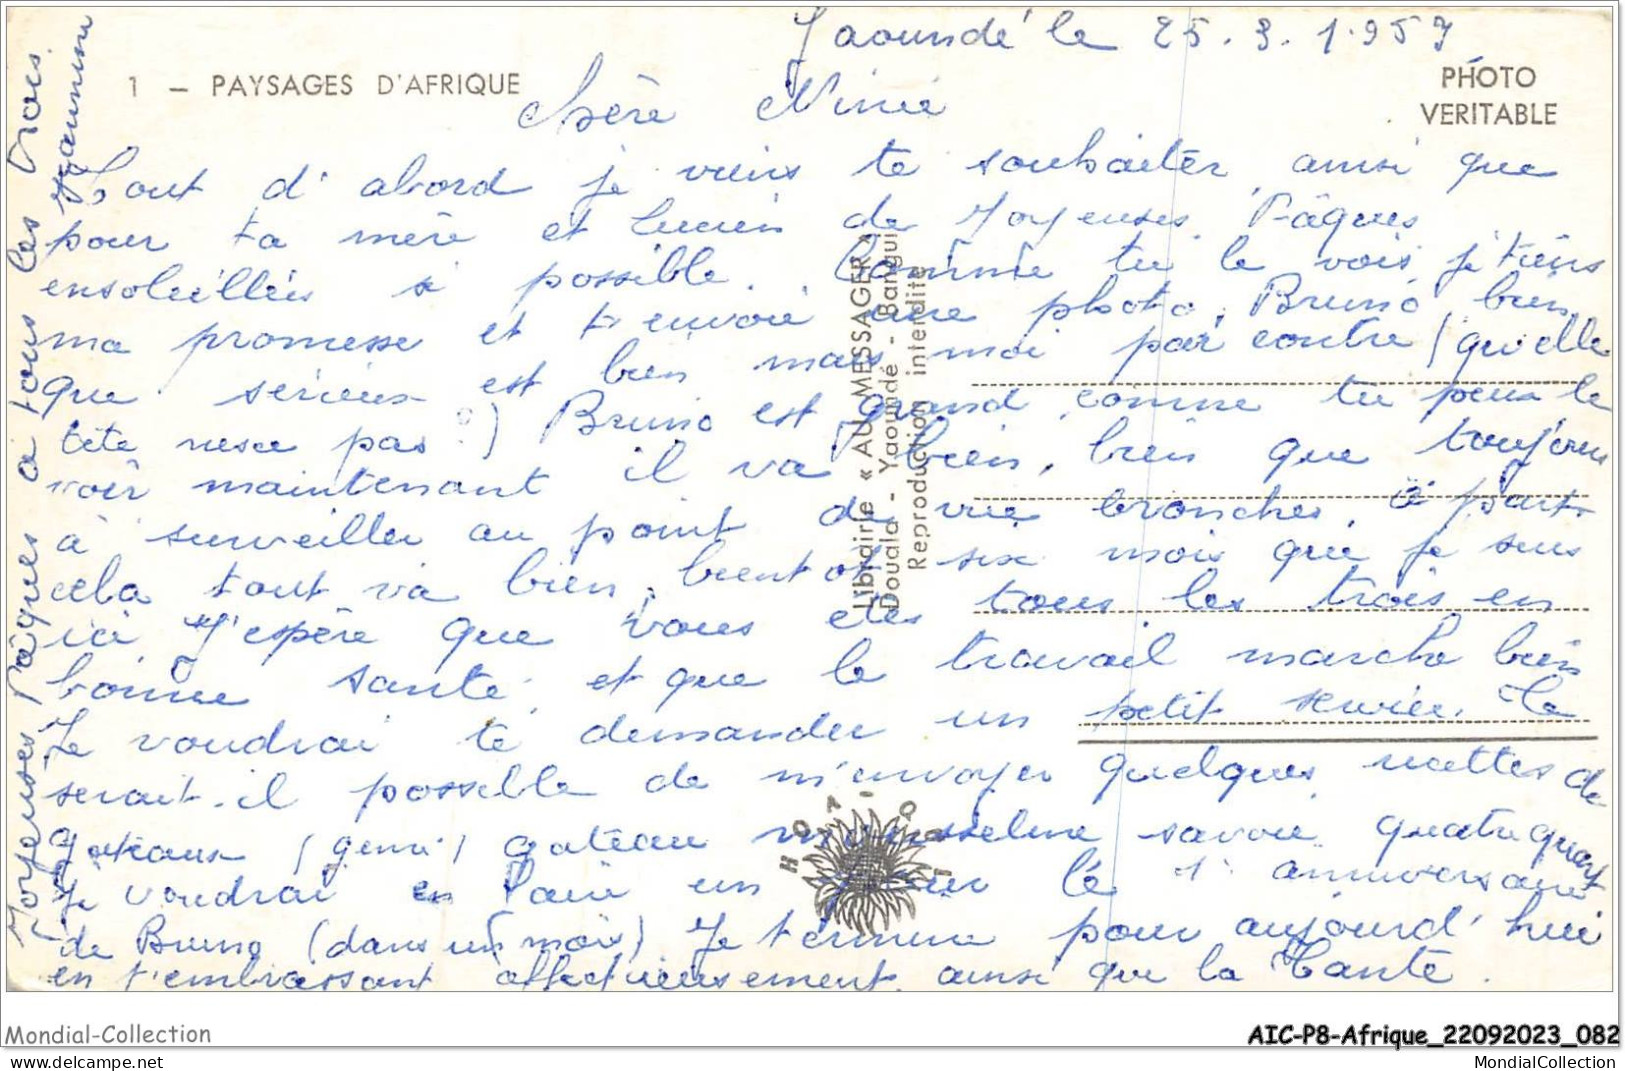 Yaoundé le 25.3.1957
1 — PAYSAGES D'AFRIQUE
PHOTO
VERITABLE
Chère Ninie
Tout d'abord je viens te souhaiter, ainsi que
pour ta mère et Lucien de Joyeuses Pâques
ensoleillées si possible. Comme tu le vois, je tiens
ma promesse et t'envoie une photo, Bruno bien
que sérieux est bien mais moi par contre (qu'elle
tête nesce pas?) Bruno est grand comme tu peux le
voir maintenant il va bien, bien que toujours
à surveiller au point de vue bronches, à part
cela tout va bien, bientôt six mois que je suis
ici J'espère que vous etes tous les trois en
bonne santé, et que le travail marche bien
Je voudrai te demander un petit service. Te
serait-il possible de m'envoyer quelques recettes de
gateaux (genre) gateau mousseline savoie quatre quart
Je voudrai en faire un pour le 1r anniversaire
de Bruno (dans un mois) Je termine pour aujourd'hui
en t'embrassant affectueusement ainsi que la Tante.
Joyeuses Pâques à tous les trois
Librairie « AU MESSAGER »
Douala - Yaoundé - Bangui
Reproduction interdite
Mondial-Collection
AIC-P8-Afrique_22092023_082
MondialCollection